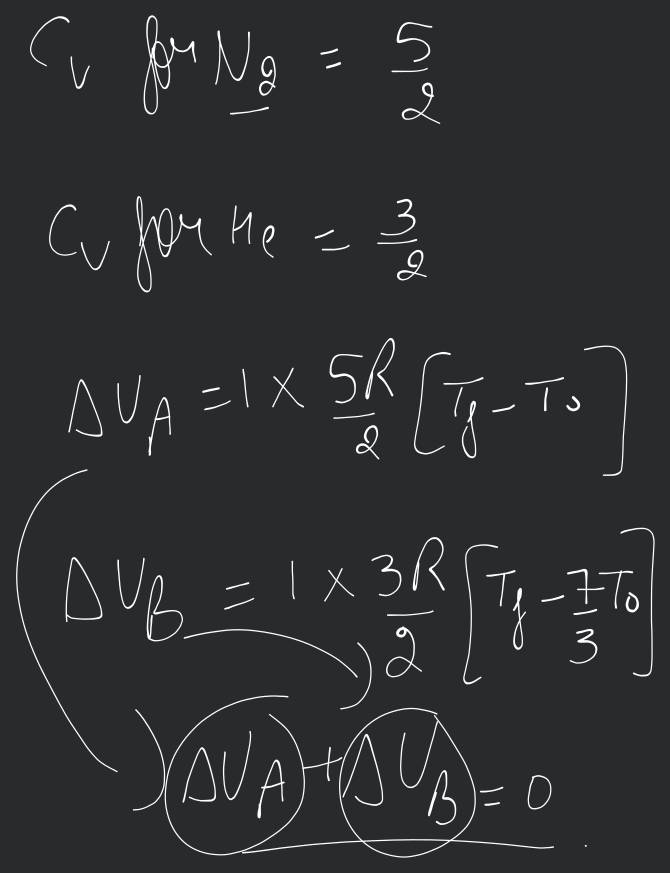 Cv for N2 = 5/2
Cv for He = 3/2
ΔUA = 1 × 5R/2 [Tf - To]
ΔUB = 1 × 3R/2 [Tf - 7/3 To]
ΔUA + ΔUB = 0